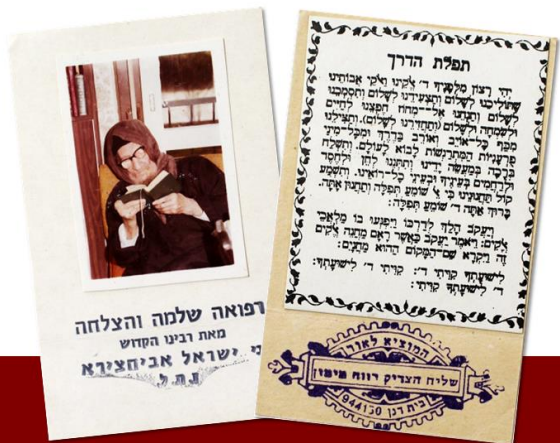 רפואה שלמה והצלחה
מאת רבינו הקדוש
ישראל אביחצירא
תפלת הדרך
יְהִי רָצוֹן מִלְּפָנֶיךָ ד' אֱקֵינוּ וֵאקֵי אֲבוֹתֵינוּ
שֶׁתּוֹלִיכֵנוּ לְשָׁלוֹם וְתַצְעִידֵנוּ לְשָׁלוֹם וְתִסְמְכֵנוּ
לְשָׁלוֹם וְתַנְחֵנוּ אֶל־מְחוֹז חֶפְצֵנוּ לְחַיִּים
וּלְשִׂמְחָה וּלְשָׁלוֹם (וְתַחֲזִירֵנוּ לְשָׁלוֹם), וְתַצִּילֵנוּ
מִכַּף כָּל־אוֹיֵב וְאוֹרֵב בַּדֶּרֶךְ וּמִכָּל־מִינֵי
פֻּרְעָנִיּוֹת הַמִּתְרַגְּשׁוֹת לָבוֹא לָעוֹלָם, וְתִשְׁלַח
בְּרָכָה בְּמַעֲשֵׂה יָדֵינוּ וְתִתְּנֵנוּ לְחֵן וּלְחֶסֶד
וּלְרַחֲמִים בְּעֵינֶיךָ וּבְעֵינֵי כָל־רוֹאֵינוּ, וְתִשְׁמַע
קוֹל תַּחֲנוּנֵינוּ כִּי שׁוֹמֵעַ תְּפִלָּה וְתַחֲנוּן אָתָּה.
בָּרוּךְ אַתָּה ד' שׁוֹמֵעַ תְּפִלָּה:
וְיַעֲקֹב הָלַךְ לְדַרְכּוֹ וַיִּפְגְּעוּ בוֹ מַלְאֲכֵי
אֱקִים: וַיֹּאמֶר יַעֲקֹב כַּאֲשֶׁר רָאָם מַחֲנֵה אֱקִים
זֶה וַיִּקְרָא שֵׁם־הַמָּקוֹם הַהוּא מַחֲנָיִם:
לִישׁוּעָתְךָ קִוִּיתִי ד': קִוִּיתִי ד' לִישׁוּעָתְךָ:
ד' לִישׁוּעָתְךָ קִוִּיתִי:
המוציא לאור
שליח הצדיק רווח מימון
בית דגן 944130